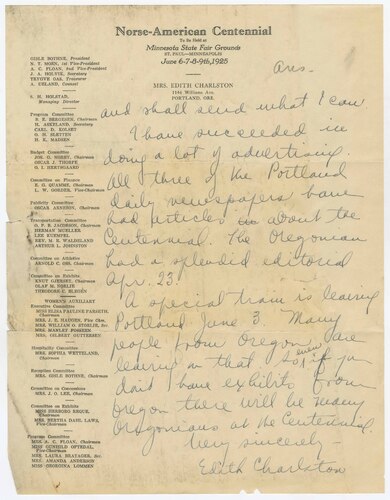 Norse-American Centennial
To Be Held at
Minnesota State Fair Grounds
ST. PAUL—MINNEAPOLIS
June 6-7-8-9th, 1925
GISLE BOTHNE, President
N. T. MOEN, 1st Vice-President
A. C. FLOAN, 2nd Vice-President
J. A. HOLVIK, Secretary
TRYGVE OAS, Treasurer
A. UELAND, Counsel
S. H. HOLSTAD,
Managing Director
Ans.
MRS. EDITH CHARLSTON
1184 Williams Ave.
PORTLAND, ORE.
Program Committee
H. ASKELAND, Secretary
CARL D. KOLSET
O. H. SLETTEN
K. K. MADSEN
Budget Committee
JOS. G. NORBY, Chairman
OSCAR J. THORPE
Committee on Finance
E. G. QUAMME, Chairman
L. W. Chairman
Publicity Committee
OSCAR ARNESON, Chairman
Transportation Committee
O. P. B. JACOBSON, Chairman
HERMAN MUELLER
LEE KUEMPEL
REV. M. E. WALDELAND
ARTHUR L. JOHNSTON
Committee on Athletics
ARNOLD C. OSS, Chairman
Committee on Exhibits
KNUT GJERSET, Chairman
OLAF M. NORLIE
THEODORE C. BLEGEN
WOMEN'S AUXILIARY
Executive Committee
MISS ELISA FARSETH, Chairman
MRS. WILLIAM O. Sec.
MRS. MANLEY FOSSEEN
MRS. GILBERT GUTTERSEN
Hospitality Committee
MRS. SOPHIA Chairman
Reception Committee
MRS. GISLE BOTHNE, Chairman
Committee on Concessions
MRS. J. O. LEE, Chairman
Committee on Exhibits
MISS HERBORG REQUE, Chairman
MRS. BERTHA DAHL LAWS, Vice-Chairman
Program Committee
MRS. A. C. FLOAN, Chairman
MISS GUNHILD Vice-Chairman
MRS. LAURA BRATAGER, Sec.
MRS. AMANDA ANDERSON
MISS GEORGINA LOMMEN
and shall send what I can
I have succeeded in
doing a lot of advertising
all three of the Portland
daily newspapers have
had articles about the
Centennial. The Oregonian
had a splendid editorial
Apr. 23.
A special train is leaving
Portland June 3. Many
people from Oregon are
leaving on that so even if you
don't have exhibits from
Oregon there will be many
Oregonians at the Centennial.
Very sincerely -
Edith Charlston